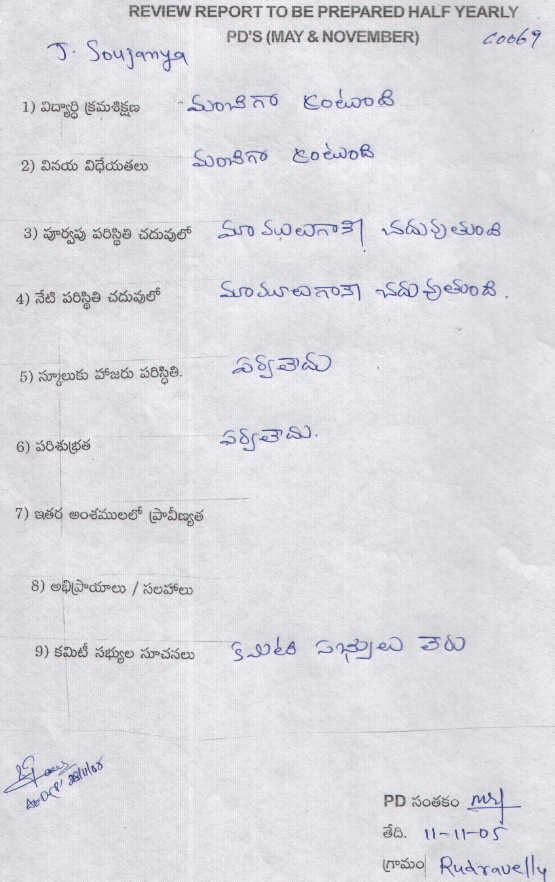 REVIEW REPORT TO BE PREPARED HALF YEARLY
PD'S (MAY & NOVEMBER) C0069
J. Soujanya
1) విద్యార్ధి క్రమశిక్షణ మంచిగా ఉంటుంది
2) వినయ విధేయతలు మంచిగా ఉంటుంది
3) పూర్వపు పరిస్థితి చదువులో మామూలుగానే చదువుతుంది
4) నేటి పరిస్థితి చదువులో మామూలుగానే చదువుతుంది.
5) స్కూలుకు హాజరు పరిస్ధితి.
6) పరిశుభ్రత
7) ఇతర అంశములలో ప్రావీణ్యత
8) అభిప్రాయాలు / సలహాలు
9) కమిటీ సభ్యుల సూచనలు కమిటి సభ్యులు లేరు
28/11/05
PD సంతకం
తేది. 11-11-05
గ్రామం Rudravelly